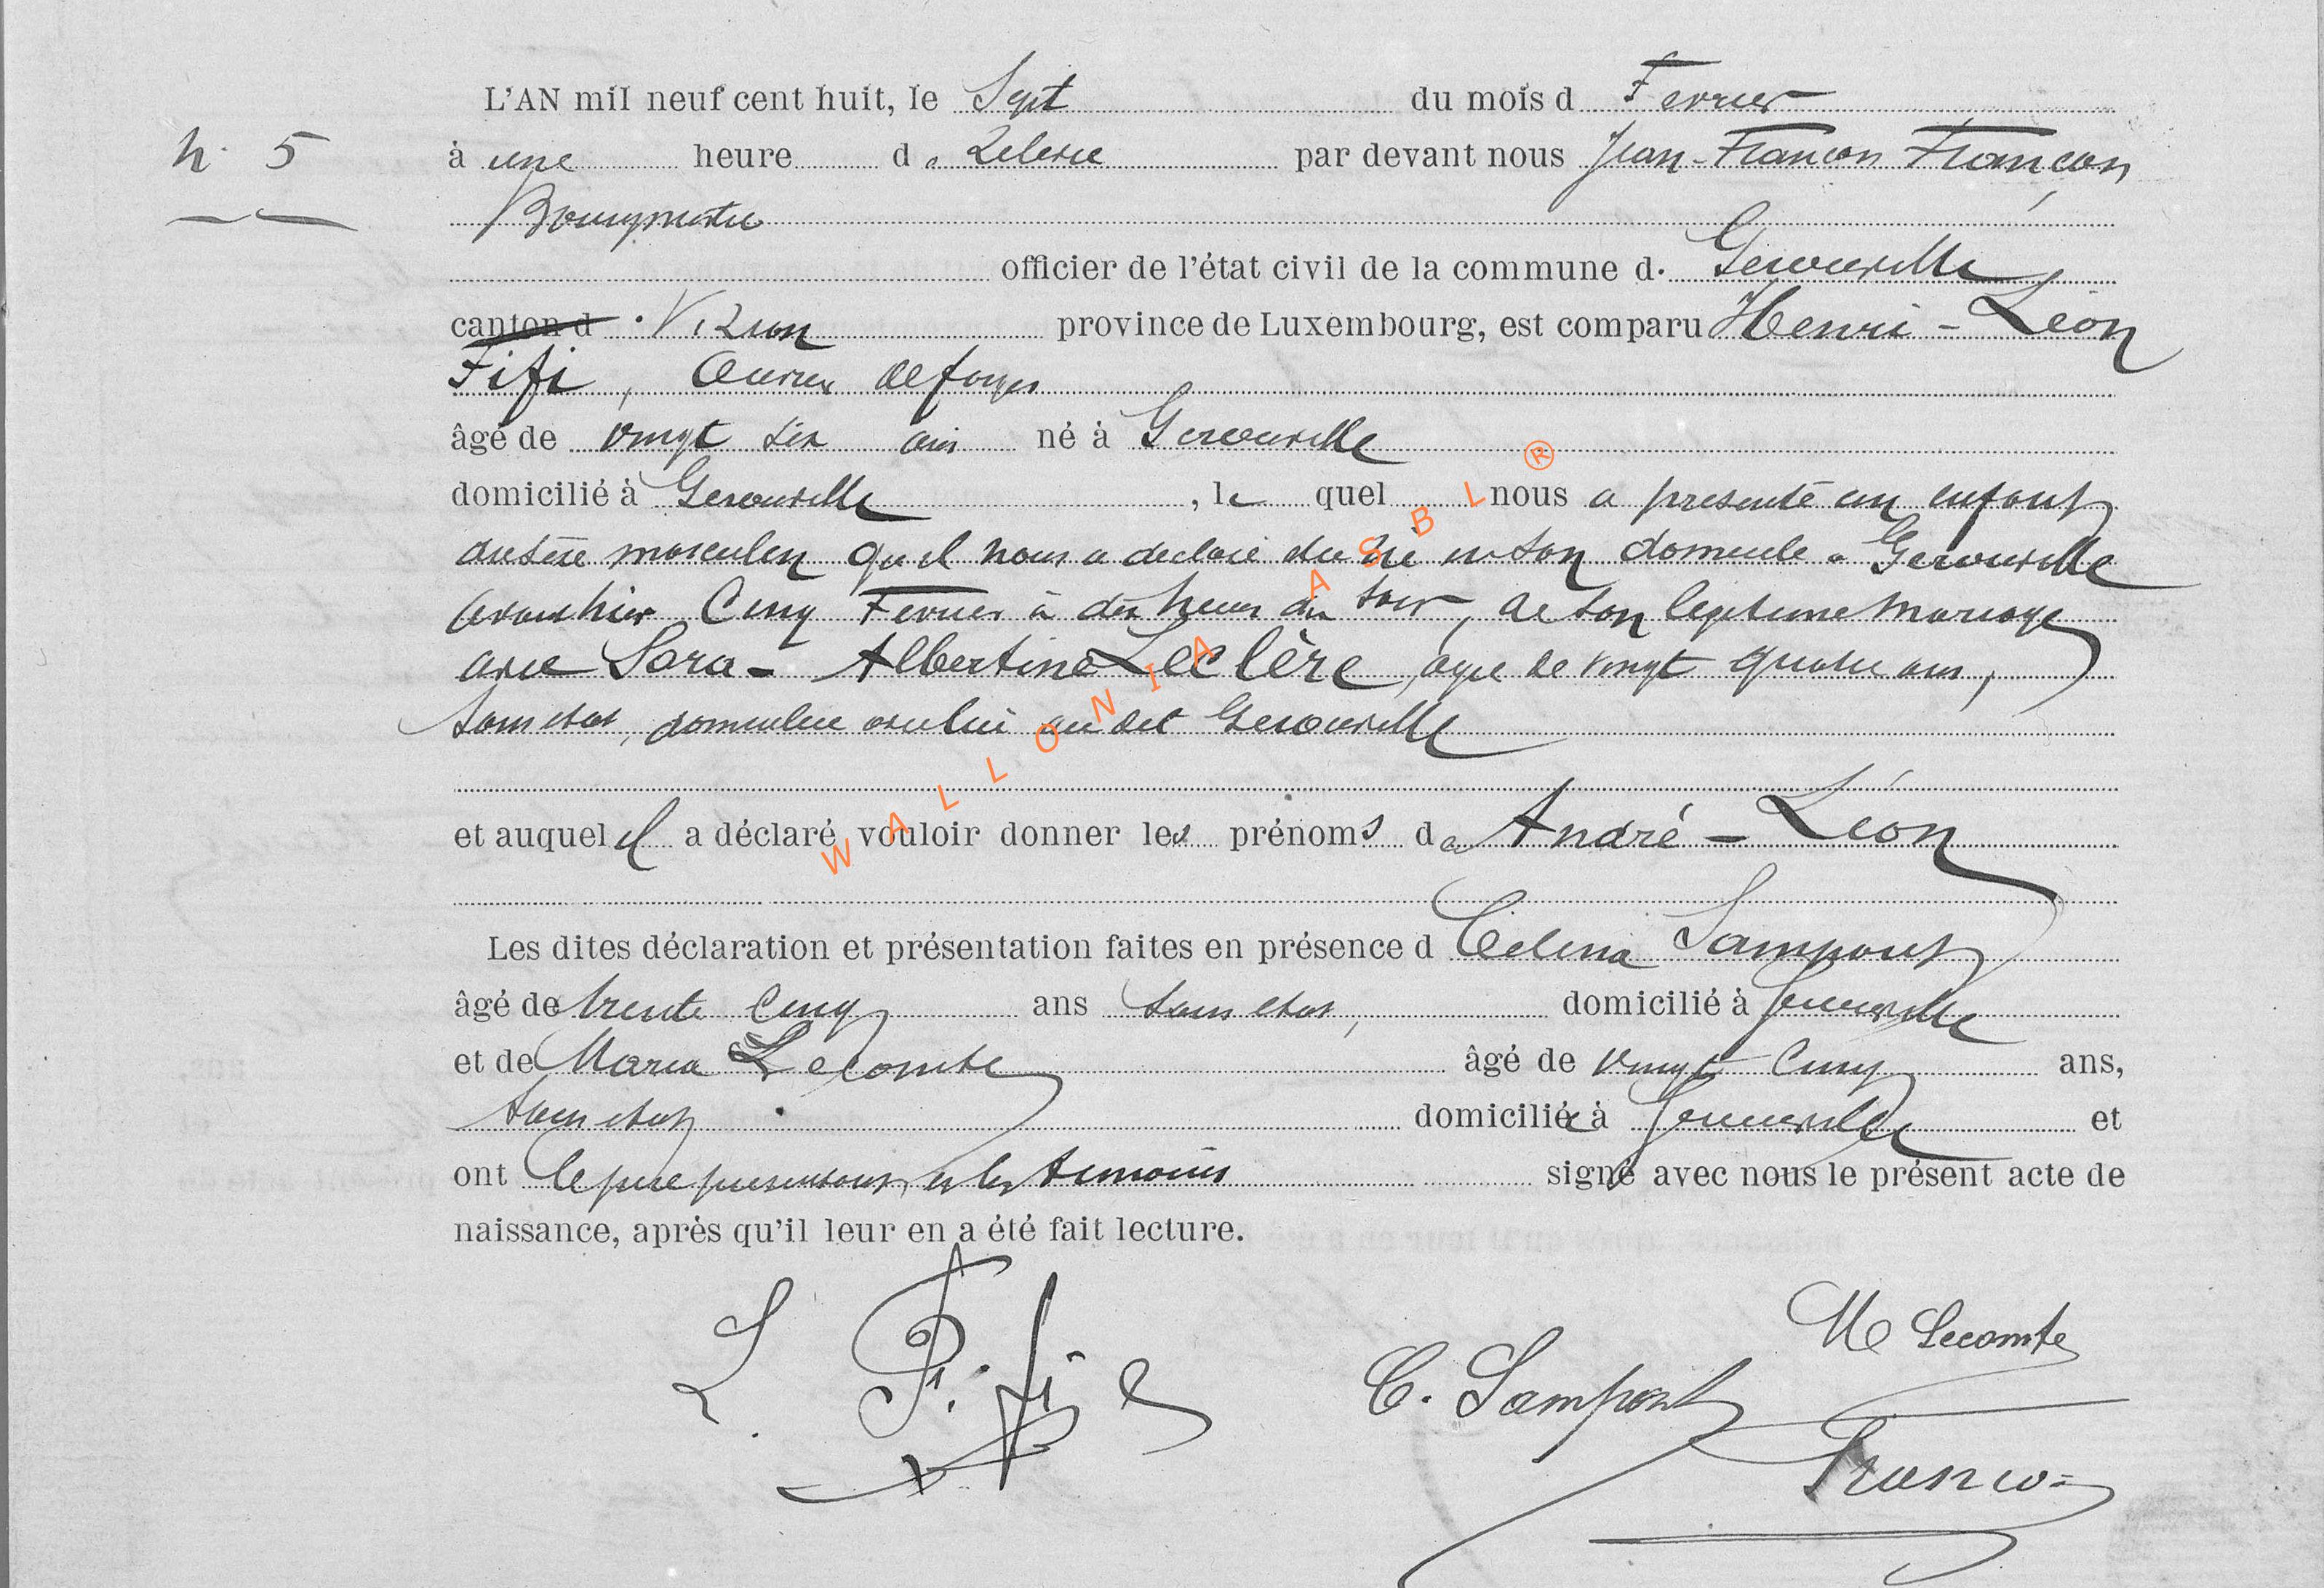 L'AN mil neuf cent huit, le Sept du mois d Fevrier
N. 5 à une heure de relevée par devant nous Jean-François François
Bourgmestre
officier de l'état civil de la commune de Gerouville
canton d Virton province de Luxembourg, est comparu Henri - Léon
Fifi, Ouvrier de forges
âgé de vingt six ans né à Gerouville
domicilié à Gerouville, le quel nous a presenté un enfant
du sexe masculin qu'il nous a declaré etre né en son domicile a Gerouville
avant hier Cinq Fevrier à dix heures du soir, de son legitime mariage
avec Sara - Albertine Leclère, agee de vingt quatre ans,
sans etat, domiciliee avec lui au dit Gerouville
et auquel il a déclaré vouloir donner les prénoms de André - Léon
Les dites déclaration et présentation faites en présence d Celina Sampont
âgé de trente Cinq ans sans etat, domicilié à Gerouville
et de Maria Lecomte âgé de vingt Cinq ans,
sans etat domiciliée à Gerouville et
ont le pere presentant et les temoins signé avec nous le présent acte de
naissance, après qu'il leur en a été fait lecture.
L. Fifi
M Lecomte
C. Sampont
François
WALLONIA ASBL ®